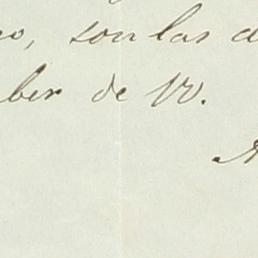 o, son las d
ber de V.
A